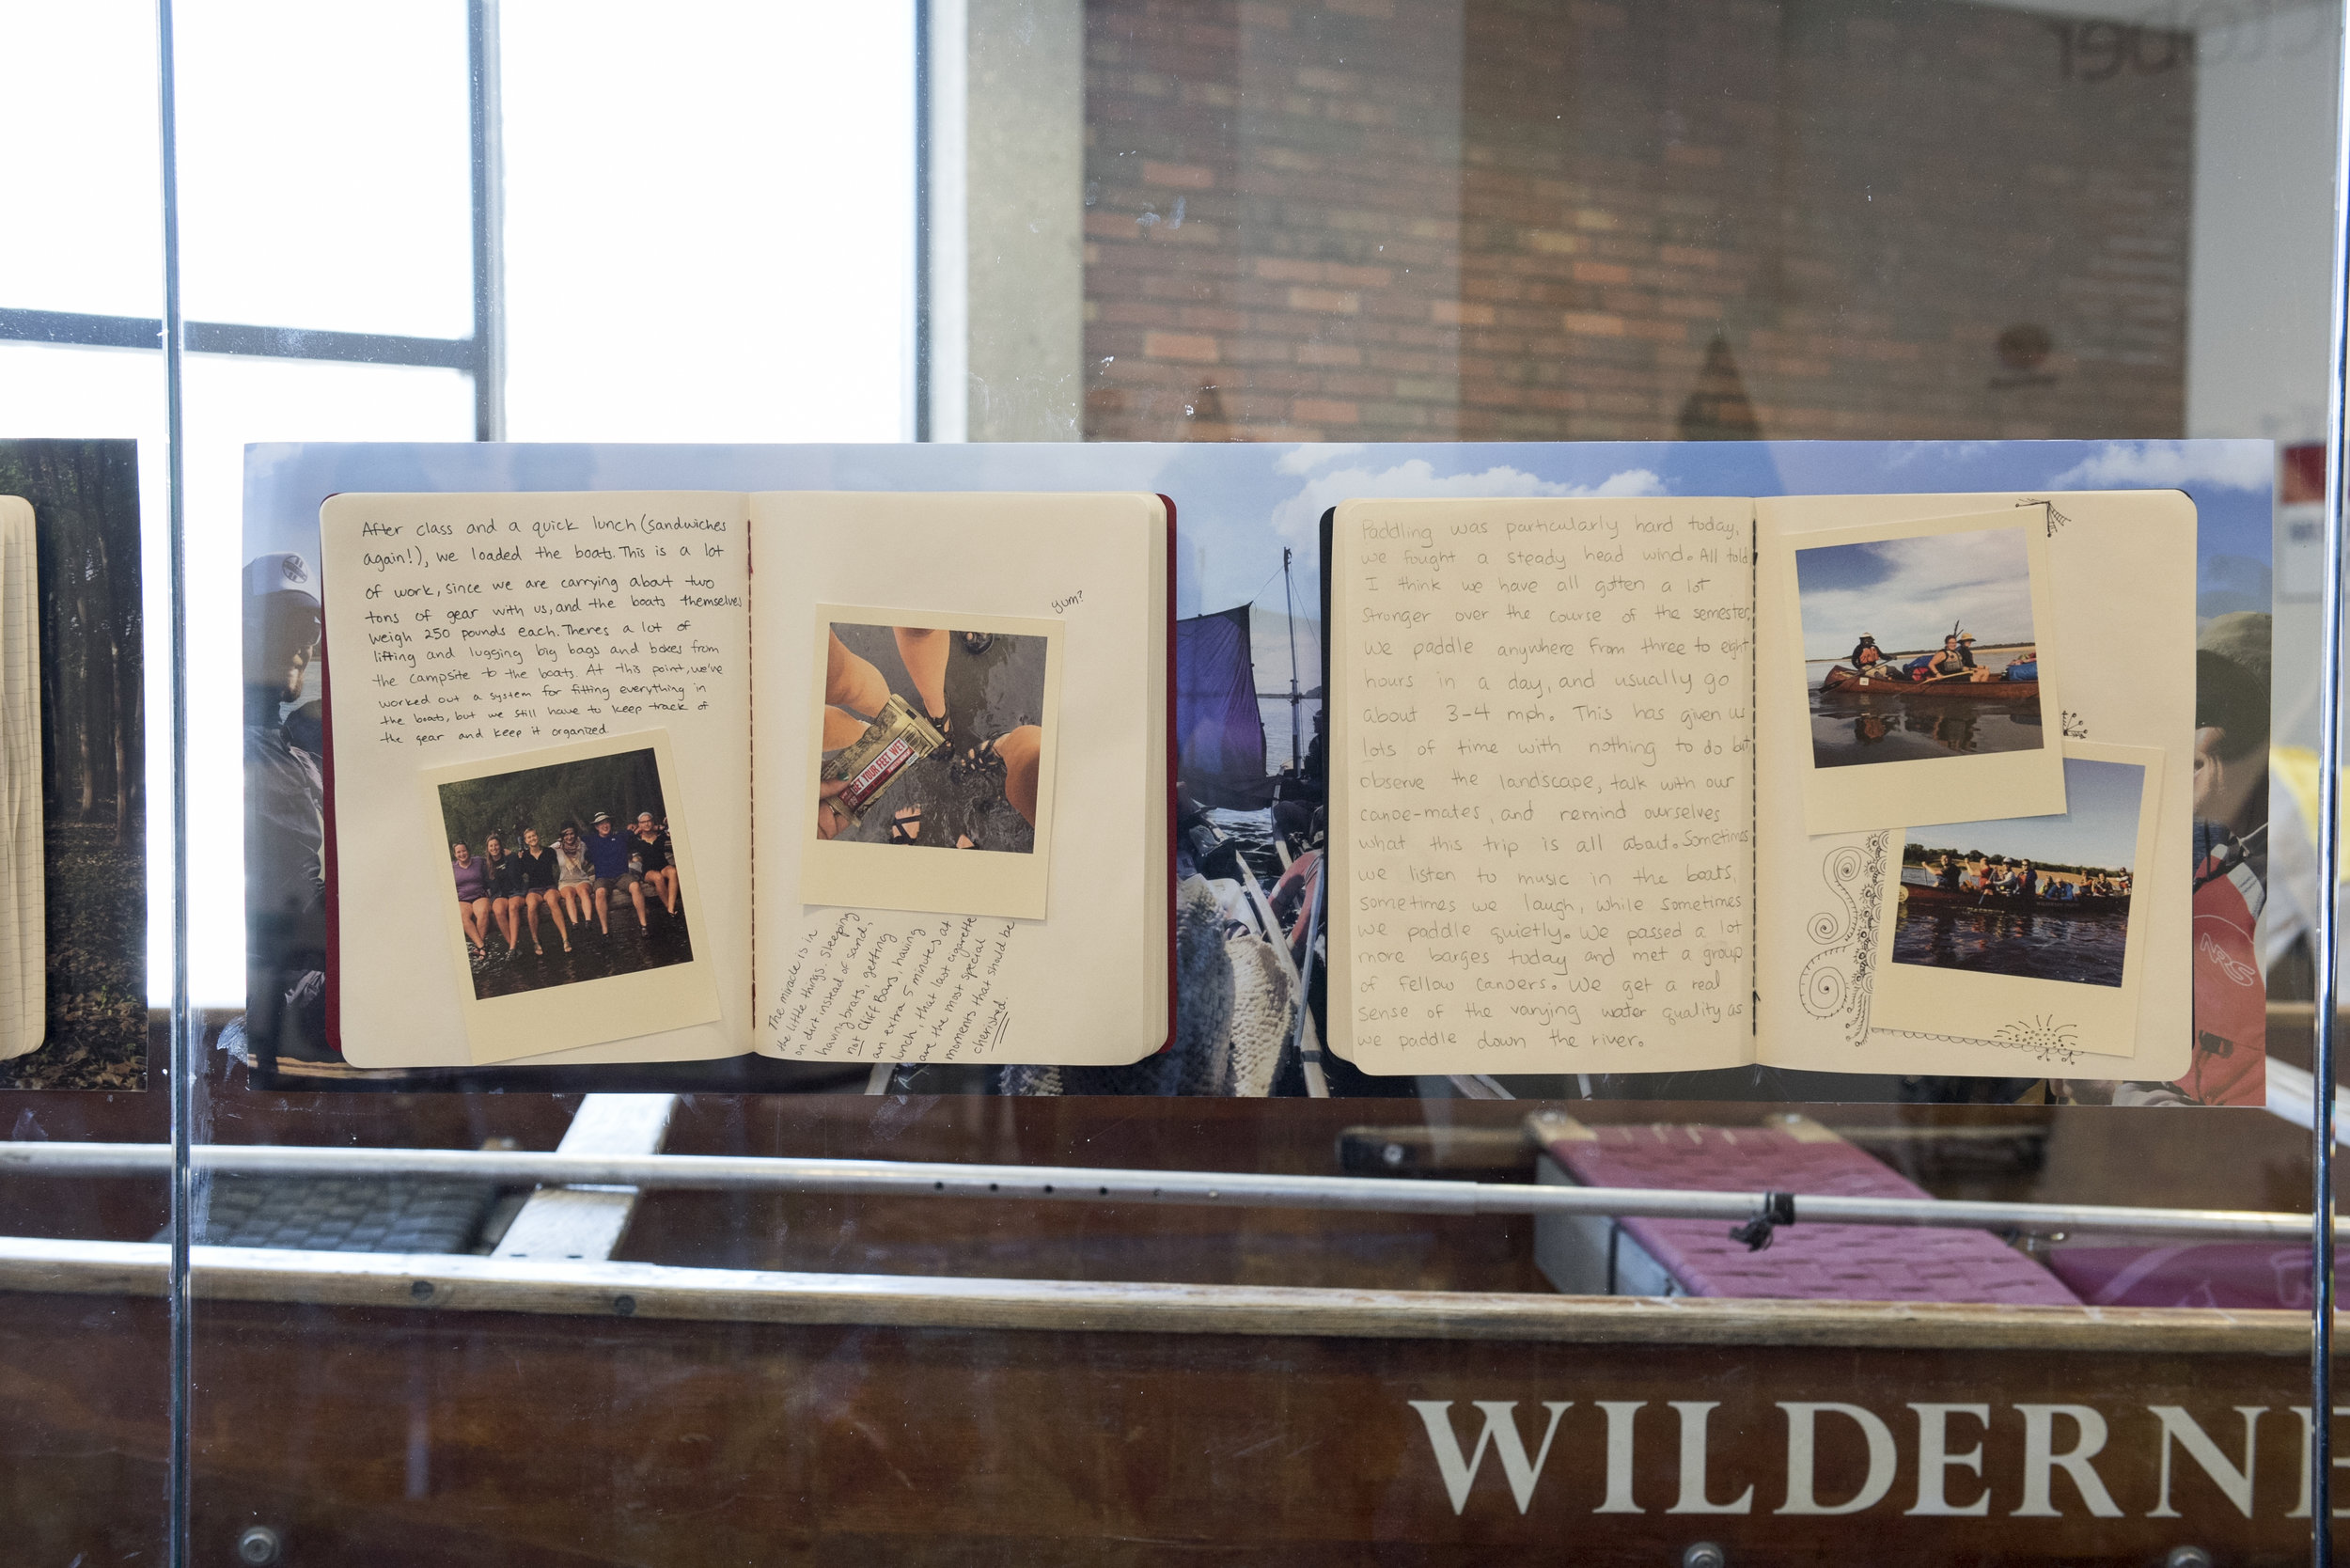 After class and a quick lunch (sandwiches
again!), we loaded the boats. This is a lot
of work, since we are carrying about two
tons of gear with us, and the boats themselves
weigh 250 pounds each. Theres a lot of
lifting and lugging big bags and boxes from
the campsite to the boats. At this point, we've
worked out a system for fitting everything in
the boats, but we still have to keep track of
the gear and keep it organized.
yum?
GET YOUR FEET WET
The miracle is in
the little things. Sleeping
on dirt instead of sand,
having brats, getting
not Cliff Bars, having
an extra 5 minutes at
lunch, that last cigarette
are the most special
moments that should be
cherished.
Paddling was particularly hard today,
we fought a steady head wind. All told
I think we have all gotten a lot
stronger over the course of the semester.
We paddle anywhere from three to eight
hours in a day, and usually go
about 3-4 mph. This has given us
lots of time with nothing to do but
observe the landscape, talk with our
canoe-mates, and remind ourselves
what this trip is all about. Sometimes
we listen to music in the boats,
sometimes we laugh, while sometimes
we paddle quietly. We passed a lot
more barges today and met a group
of fellow canoers. We get a real
sense of the varying water quality as
we paddle down the river.
NRS
WILDERNE